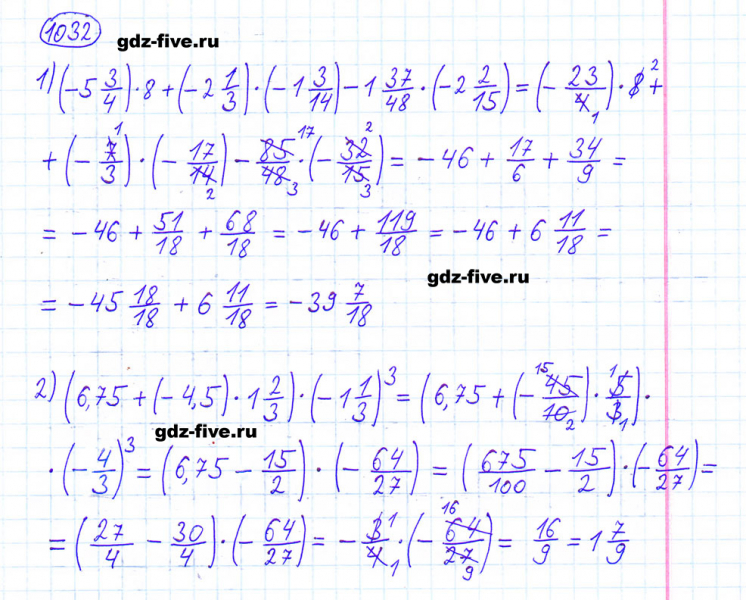 1032
gdz-five.ru
1) (-5 3/4) · 8 + (-2 1/3) · (-1 3/14) - 1 37/48 · (-2 2/15) = (- 23/4 1) · 8 2 +
+ (- 7 1/3) · (- 17/14 2) - 85 17/48 3 · (- 32 2/15 3) = -46 + 17/6 + 34/9 =
= -46 + 51/18 + 68/18 = -46 + 119/18 = -46 + 6 11/18 =
gdz-five.ru
= -45 18/18 + 6 11/18 = -39 7/18
2) (6,75 + (-4,5) · 1 2/3) · (-1 1/3)^3 = (6,75 + (- 45 15/10 2) · 5 1/3 1) ·
gdz-five.ru
· (- 4/3)^3 = (6,75 - 15/2) · (- 64/27) = (675/100 - 15/2) · (- 64/27) =
= (27/4 - 30/4) · (- 64/27) = - 3 1/4 1 · (- 64 16/27 9) = 16/9 = 1 7/9